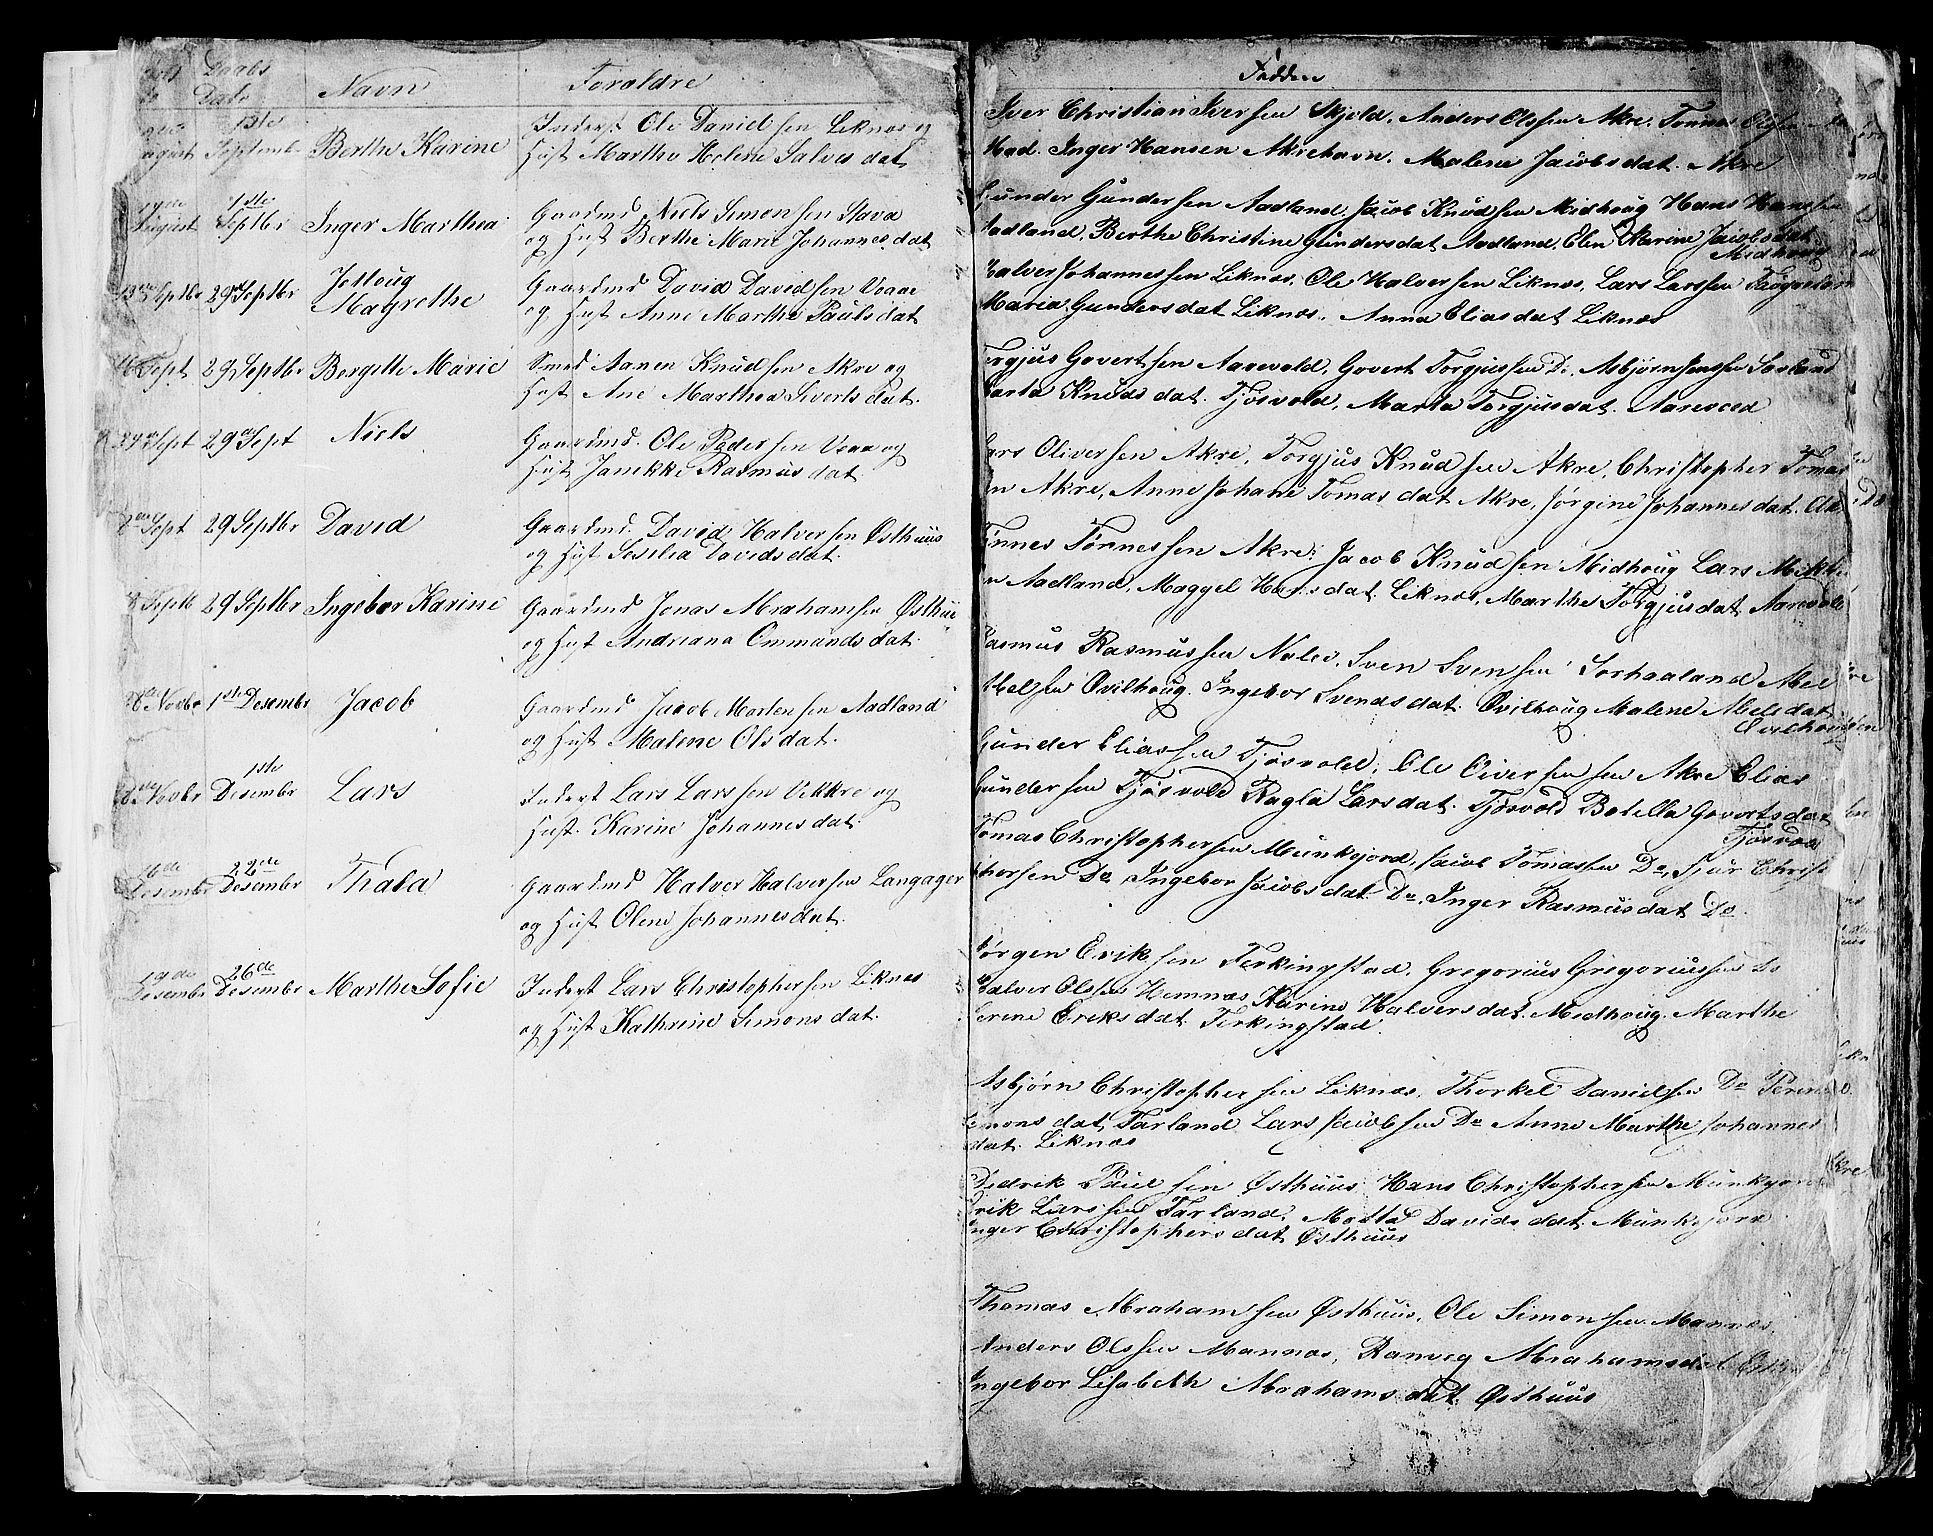 Daabs
Dato Navn Foraldre
1ste Inderst Ole Danielsen Liknæs og
August Septembr Berthe Karine Hust Marthe Helene Salves dat
19de 1ste Gaardmd Niels Simonsen Stava
August Septbr Inger Marthea og Hust Berthe Marie Johannes dat
Jettoug Gaardmd David Davidsen Veaae
Septbr 29de Septbr Magrethe og Hust Anne Marthe Pauls dat
Sept 29 Septbr Bergitte Marie Smed Aanen Knudsen Akre og
Hust Ane Marthea Siverts dat.
Sept 29de Sept Niels Gaardmd. Ole Pedersen Veaa og
Hust Janikke Rasmus dat
Sept 29 Septbr David Gaardmd. David Halversen Østhuus
og Hust Sesilia Davids dat.
Septb 29 Septbr Ingebor Karine Gaardmd Jonas Abrahamsen Østhuus
og Hust Andriana Ommunds dat.
Novbr 1ste Desembr Jacob Gaardmd Jacob Mortensen Aadland
og Hust Malene Ols dat.
1ste
Novbr Desembr Lars Inderst Lars Larssen Vikkre og
Hust. Karine Johannes dat.
6de 22de
Desembr Desembr Thala Gaardmd Halver Halversen Langager
og Hust Olene Johannes dat.
19de 26de
Desembr Desembr Marthe Sofie Inderst Lars Christophersen Liknæs
og Hust Kathrine Simons dat.
Fadder
Iver Christian Iversen Skjold. Anders Olesen Akre. Tønnes Olesen
Mad. Inger Hansen Akrehavn. Malene Jacobs dat. Akre
Gunder Gundersen Aadland, Jacob Knudsen Midhoug Hans Hansen
Aadland, Berthe Christine Gundersdat Aadland, Elen Karine Jacobs dat
Midhoug
Halver Johannessen Liknæs, Ole Halversen Liknæs, Lars Larssen
Maria Gundersdat Liknæs, Anna Eliasdat Liknæs
Torgjus Govertsen Aarevold, Govert Torgjussen Do, Asbjørn Jenssen Sørland
Marta Knuds dat. Tjøsvold, Marta Torgjusdat. Aarevold
Lars Oliversen Akre, Torgjus Knudsen Akre, Christopher Tomas
sen Akre, Anne Johane Tomas dat Akre, Jørgine Johannesdat. Ak
Tønnes Tønnessen Akre, Jacob Knudsen Midhoug Lars Mikkel
sen Aadland, Maggel Hans dat. Liknæs, Marthe Torgjusdat Aarevold
Rasmus Rasmussen Nølev. Sven Svensen Sørhaaland Mel
Melsen Ovilhoug. Ingebor Svends dat. Ovilhoug Malene Melsdat
Ovilhoug
Gunder Eliassen Tjøsvold, Ole Oiversen Akre Elias
Gundersen Tjøsvold Ragla Lars dat. Tjøsvold Botella Govertsdat
Tjøsvold
Tomas Christophersen Munkjord, Jacob Tomassen Do, Sjur Christ
phersen Do Ingebor Jacobs dat Do, Inger Rasmusdat Do.
Jørgen Eriksen Ferkingstad, Gregorius Gregoriussen Do
Halver Olssen Hemnæs Karine Halversdat. Midhoug. Marthe
Serene Eriks dat Ferkingstad.
Asbjørn Christophersen Liknæs, Thorkel Danielsen Do
Simons dat, Tarland Lars Jacobsen Do Anne Marthe Johannes
dat. Liknæs
Diedrik Paulsen Østhuus Hans Christophersen Munkjord
Erik Larssen Tarland. Motta Davids dat. Munkjord
Inger Christophers dat Østhuus
Thomas Abrahamsen Østhuus, Ole Simonsen Mannæs,
Anders Olssen Mannæs, Ranveg Abrahamsdat
Ingebor Lisabeth Abrahams dat. Østhuus